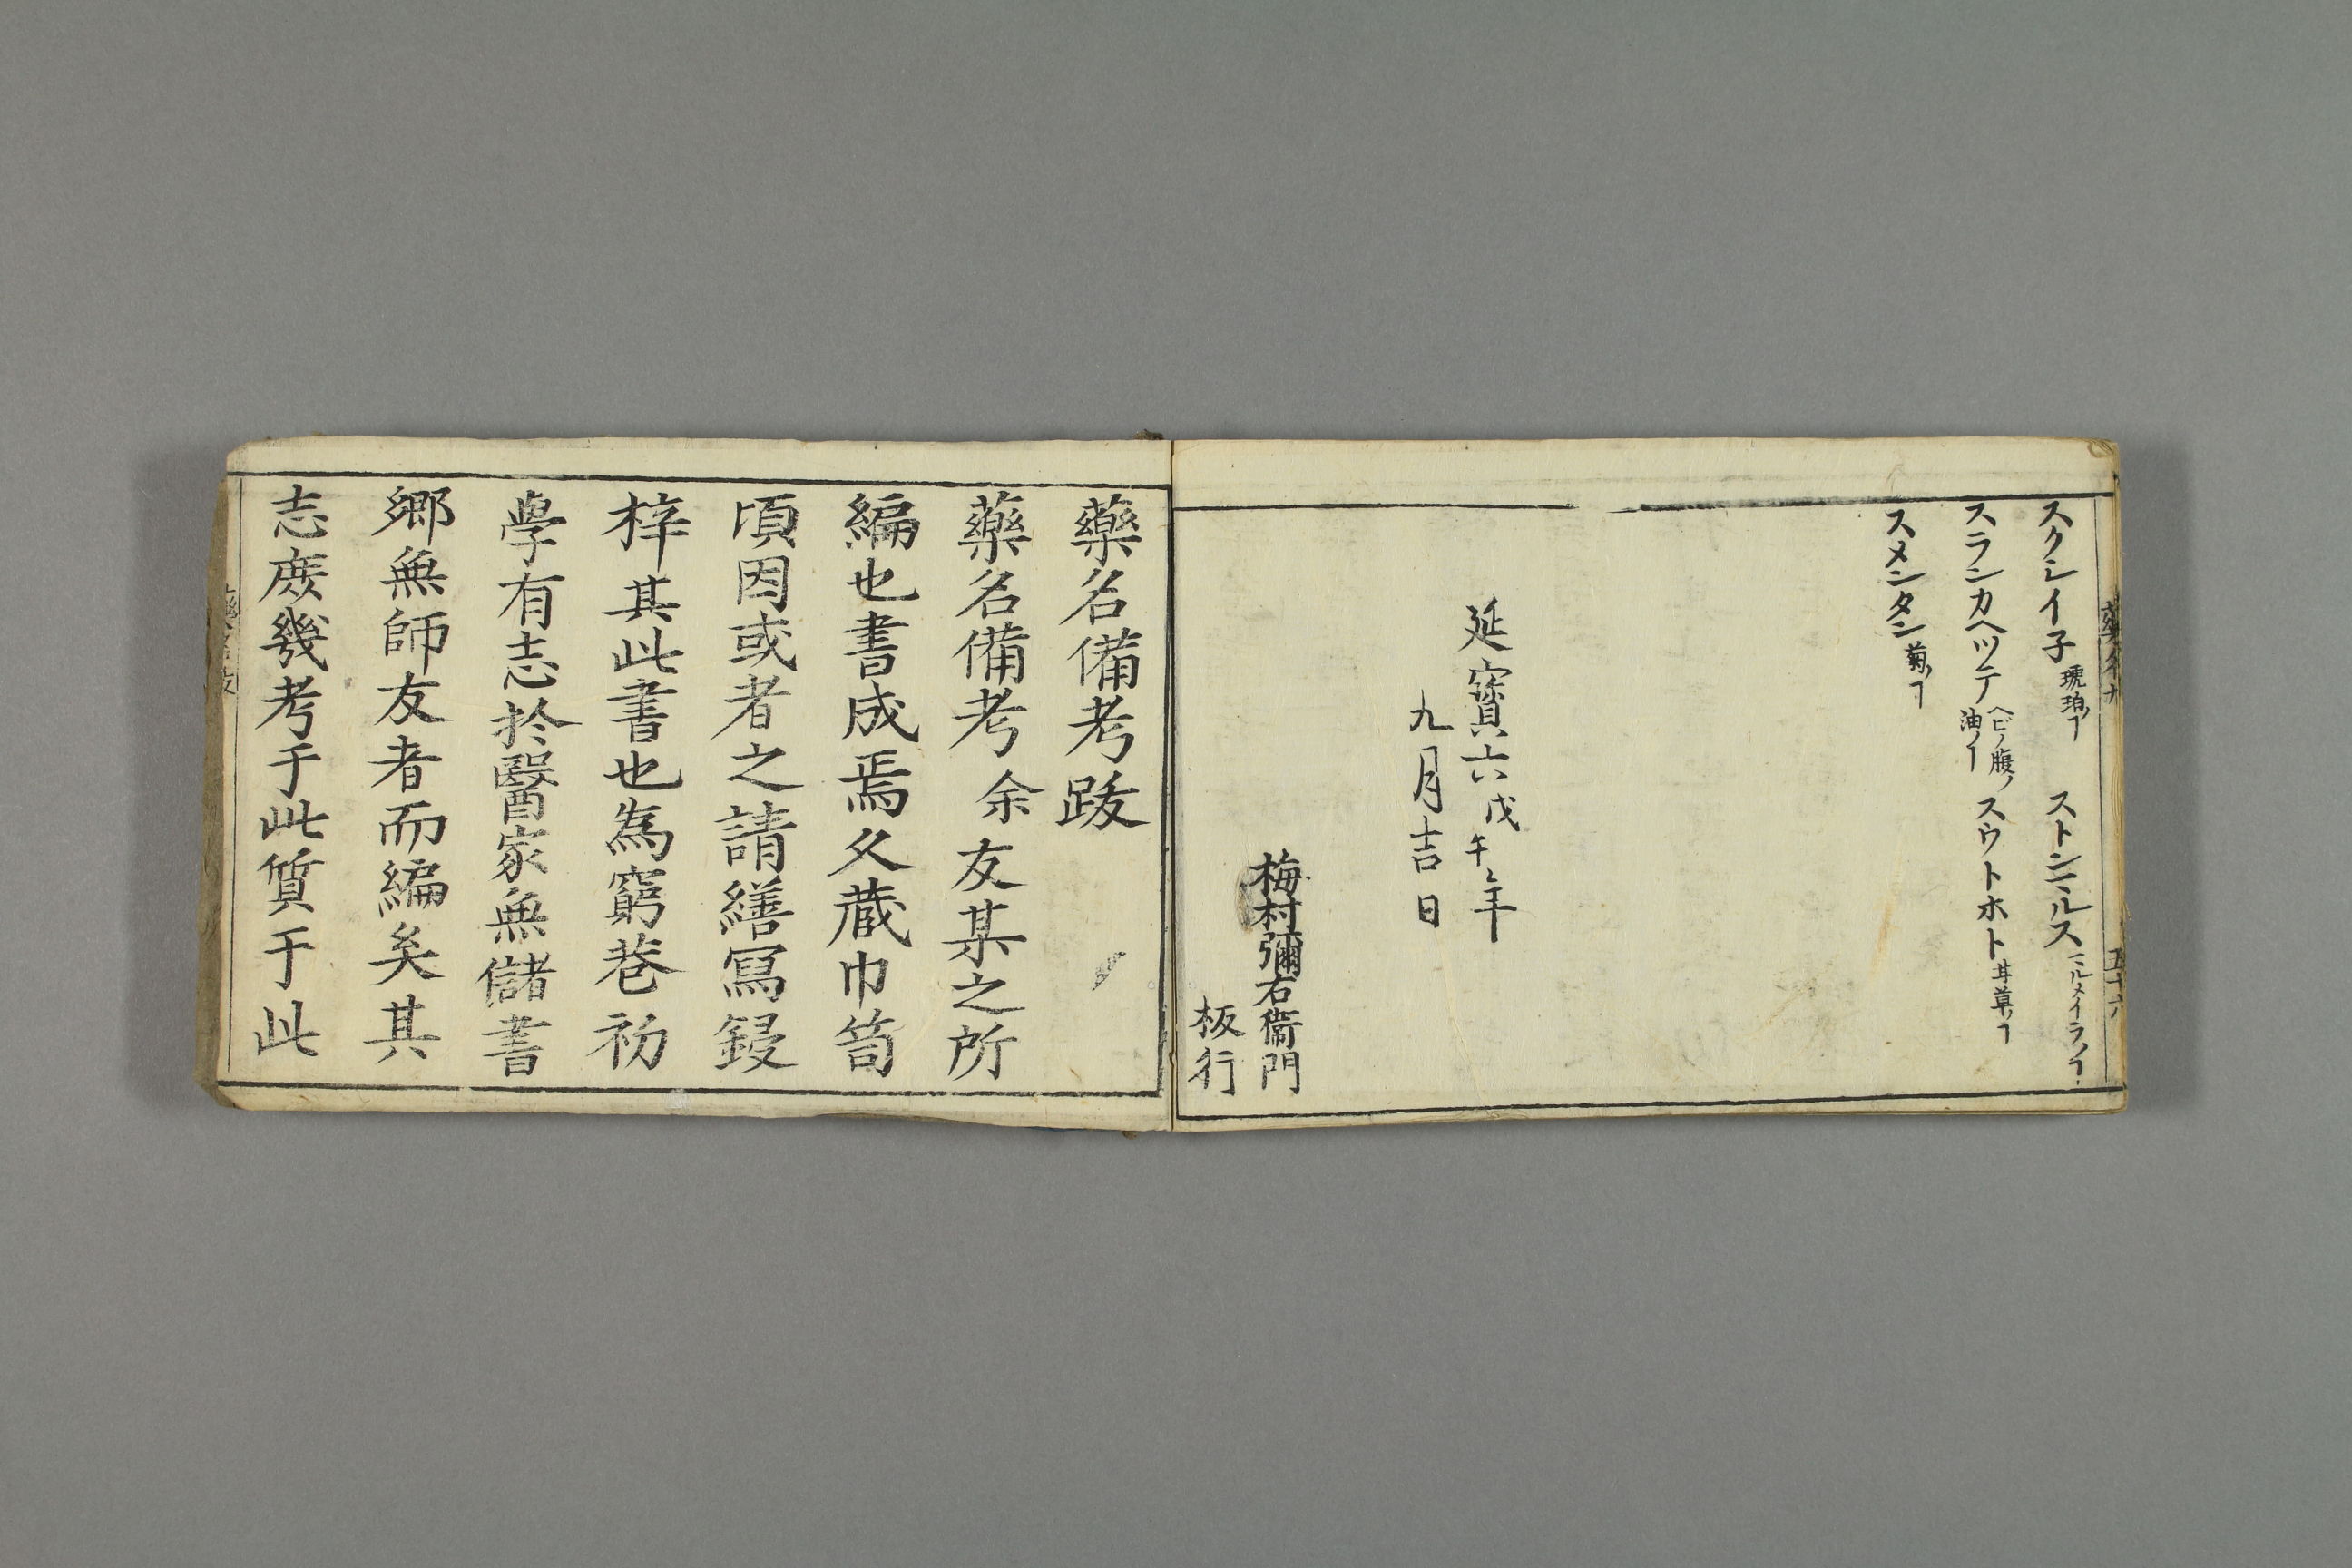 スクシイ子 琥珀ノヿ ストンニールス ミルメイラノヿ
スランカヘツテ ヘビノ腹ノ油ノヿ スウトホト 甘草ノヿ
スメンタン 菊ノヿ
延寳六戊午年
九月吉日
梅村彌右衞門
板行
五十六
藥名備考跋
藥名備考余友某之所
編也書成焉久蔵巾笥
頃因或者之請繕冩鋟
梓其此書也為窮巷初
學有志於醫家無儲書
郷無師友者而編矣其
志庻幾考于此質于此